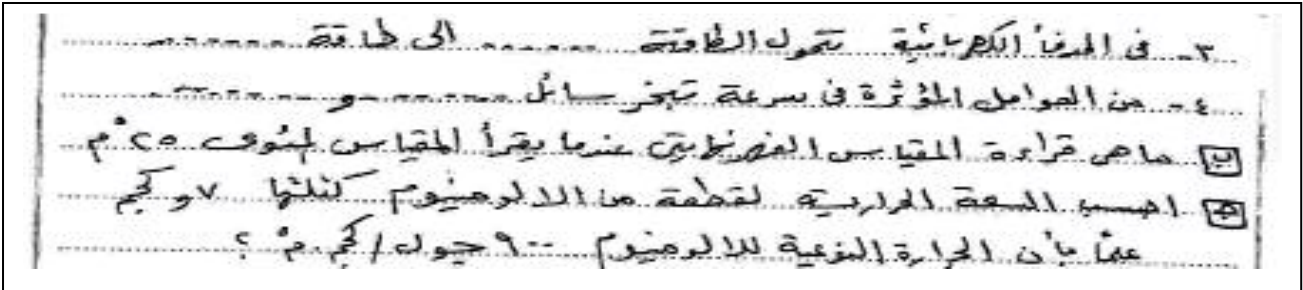 ٣- فى المدفأ الكهربائية تتحول الطاقة ....... الى طاقة .......
٤- من العوامل المؤثرة فى سرعة تبخر سائل ....... و .......
ب ما هى قراءة المقياس الفهرنهايتى عندما يقرأ المقياس المئوى ٢٥°م
ج احسب السعة الحرارية لقطعة من الالومنيوم كتلتها ٧و كجم
علماً بأن الحرارة النوعية للالومنيوم ٩٠٠ جول / كجم . م° ؟